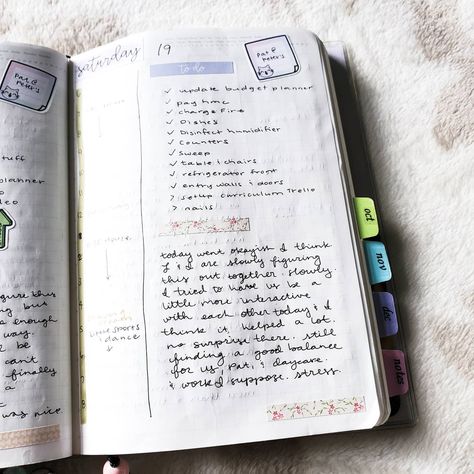 saturday
19
Pat @ Peter's
Pat @ Peter's
To do
✓ update budget planner
✓ pay hmc
✓ charge Fire
✓ Dishes
✓ Disinfect humidifier
✓ Counters
✓ sweep
✓ table & chairs
✓ refrigerator front
✓ entry walls & doors
> setup curriculum Trello
> nails
today went okayish. I think
J & I are slowly figuring
this out together. slowly.
I tried to have us be a
little more interactive
with each other today & I
think it helped a lot.
no surprise there. still
finding a good balance
for us, pat, & daycare.
& work I suppose. stress.
Little Sports
& dance
stuff
planner
deo
figure this
enough
way.
be
can't
finally
a
was nice
oct
nov
dec
notes